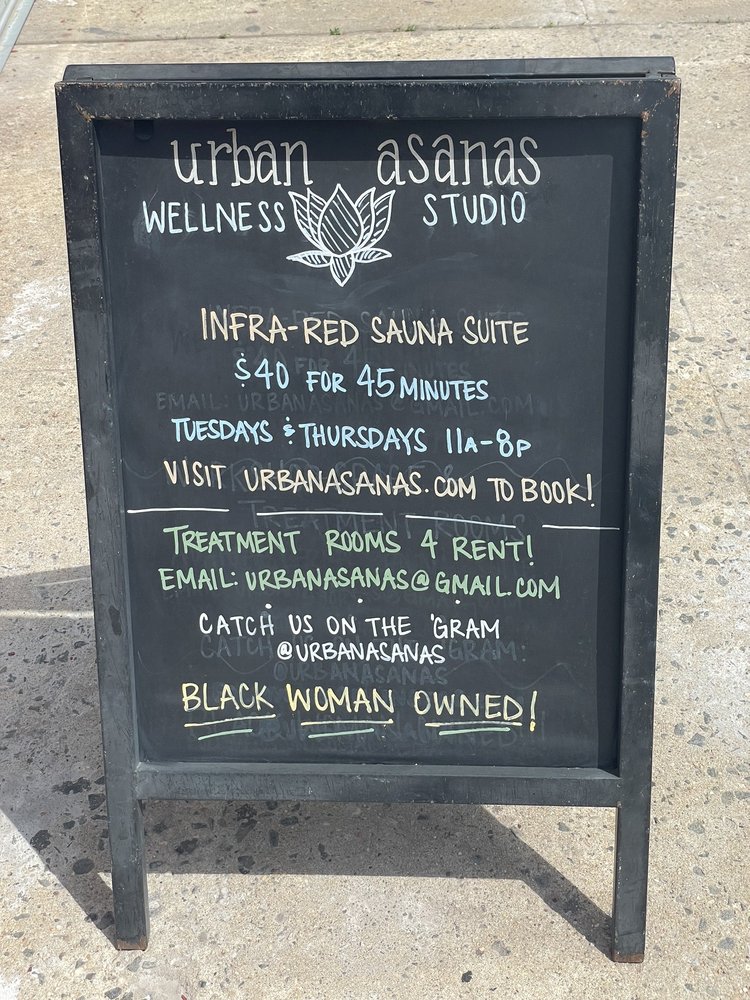 urban asanas
WELLNESS STUDIO
INFRA-RED SAUNA SUITE
$40 FOR 45 MINUTES
TUESDAYS & THURSDAYS 11A-8P
VISIT URBANASANAS.COM TO BOOK!
TREATMENT ROOMS 4 RENT!
EMAIL: URBANASANAS@GMAIL.COM
CATCH US ON THE 'GRAM
@URBANASANAS
BLACK WOMAN OWNED!